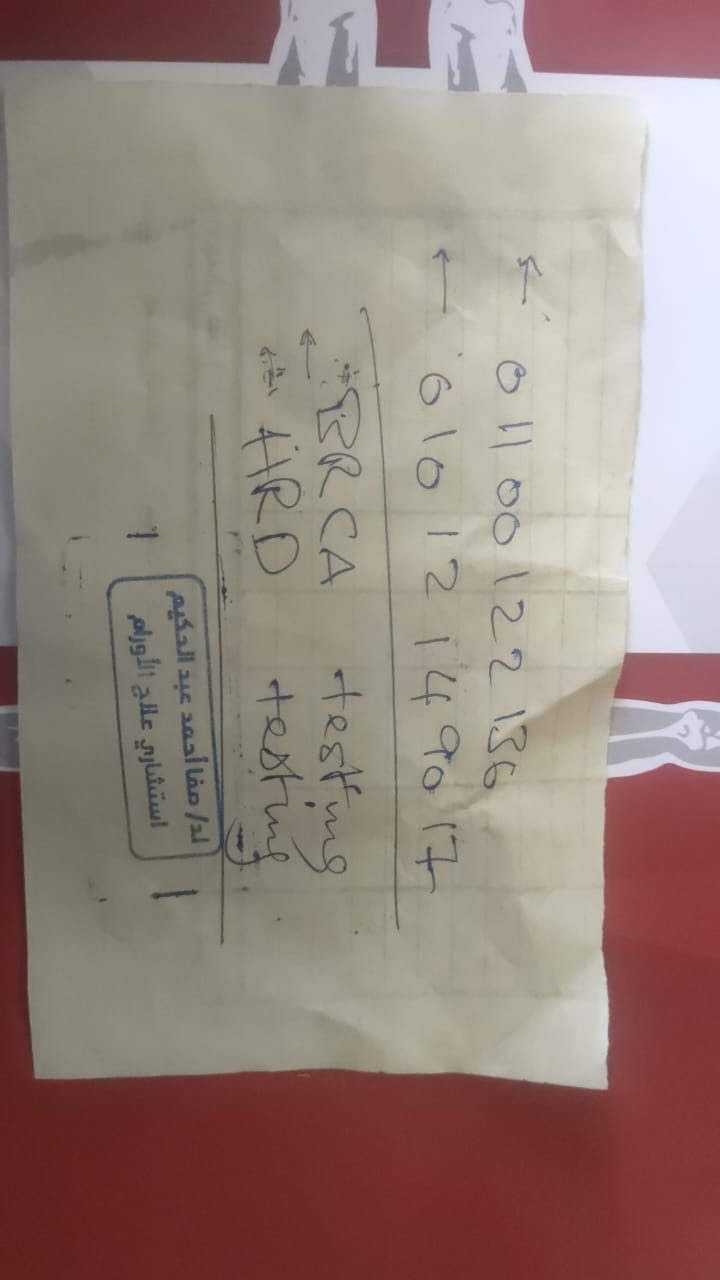 ← 01100122136
← 01012149017
← BRCA testing
HRD testing
د/ صفا أحمد عبد الحكيم
استشاري علاج الأورام